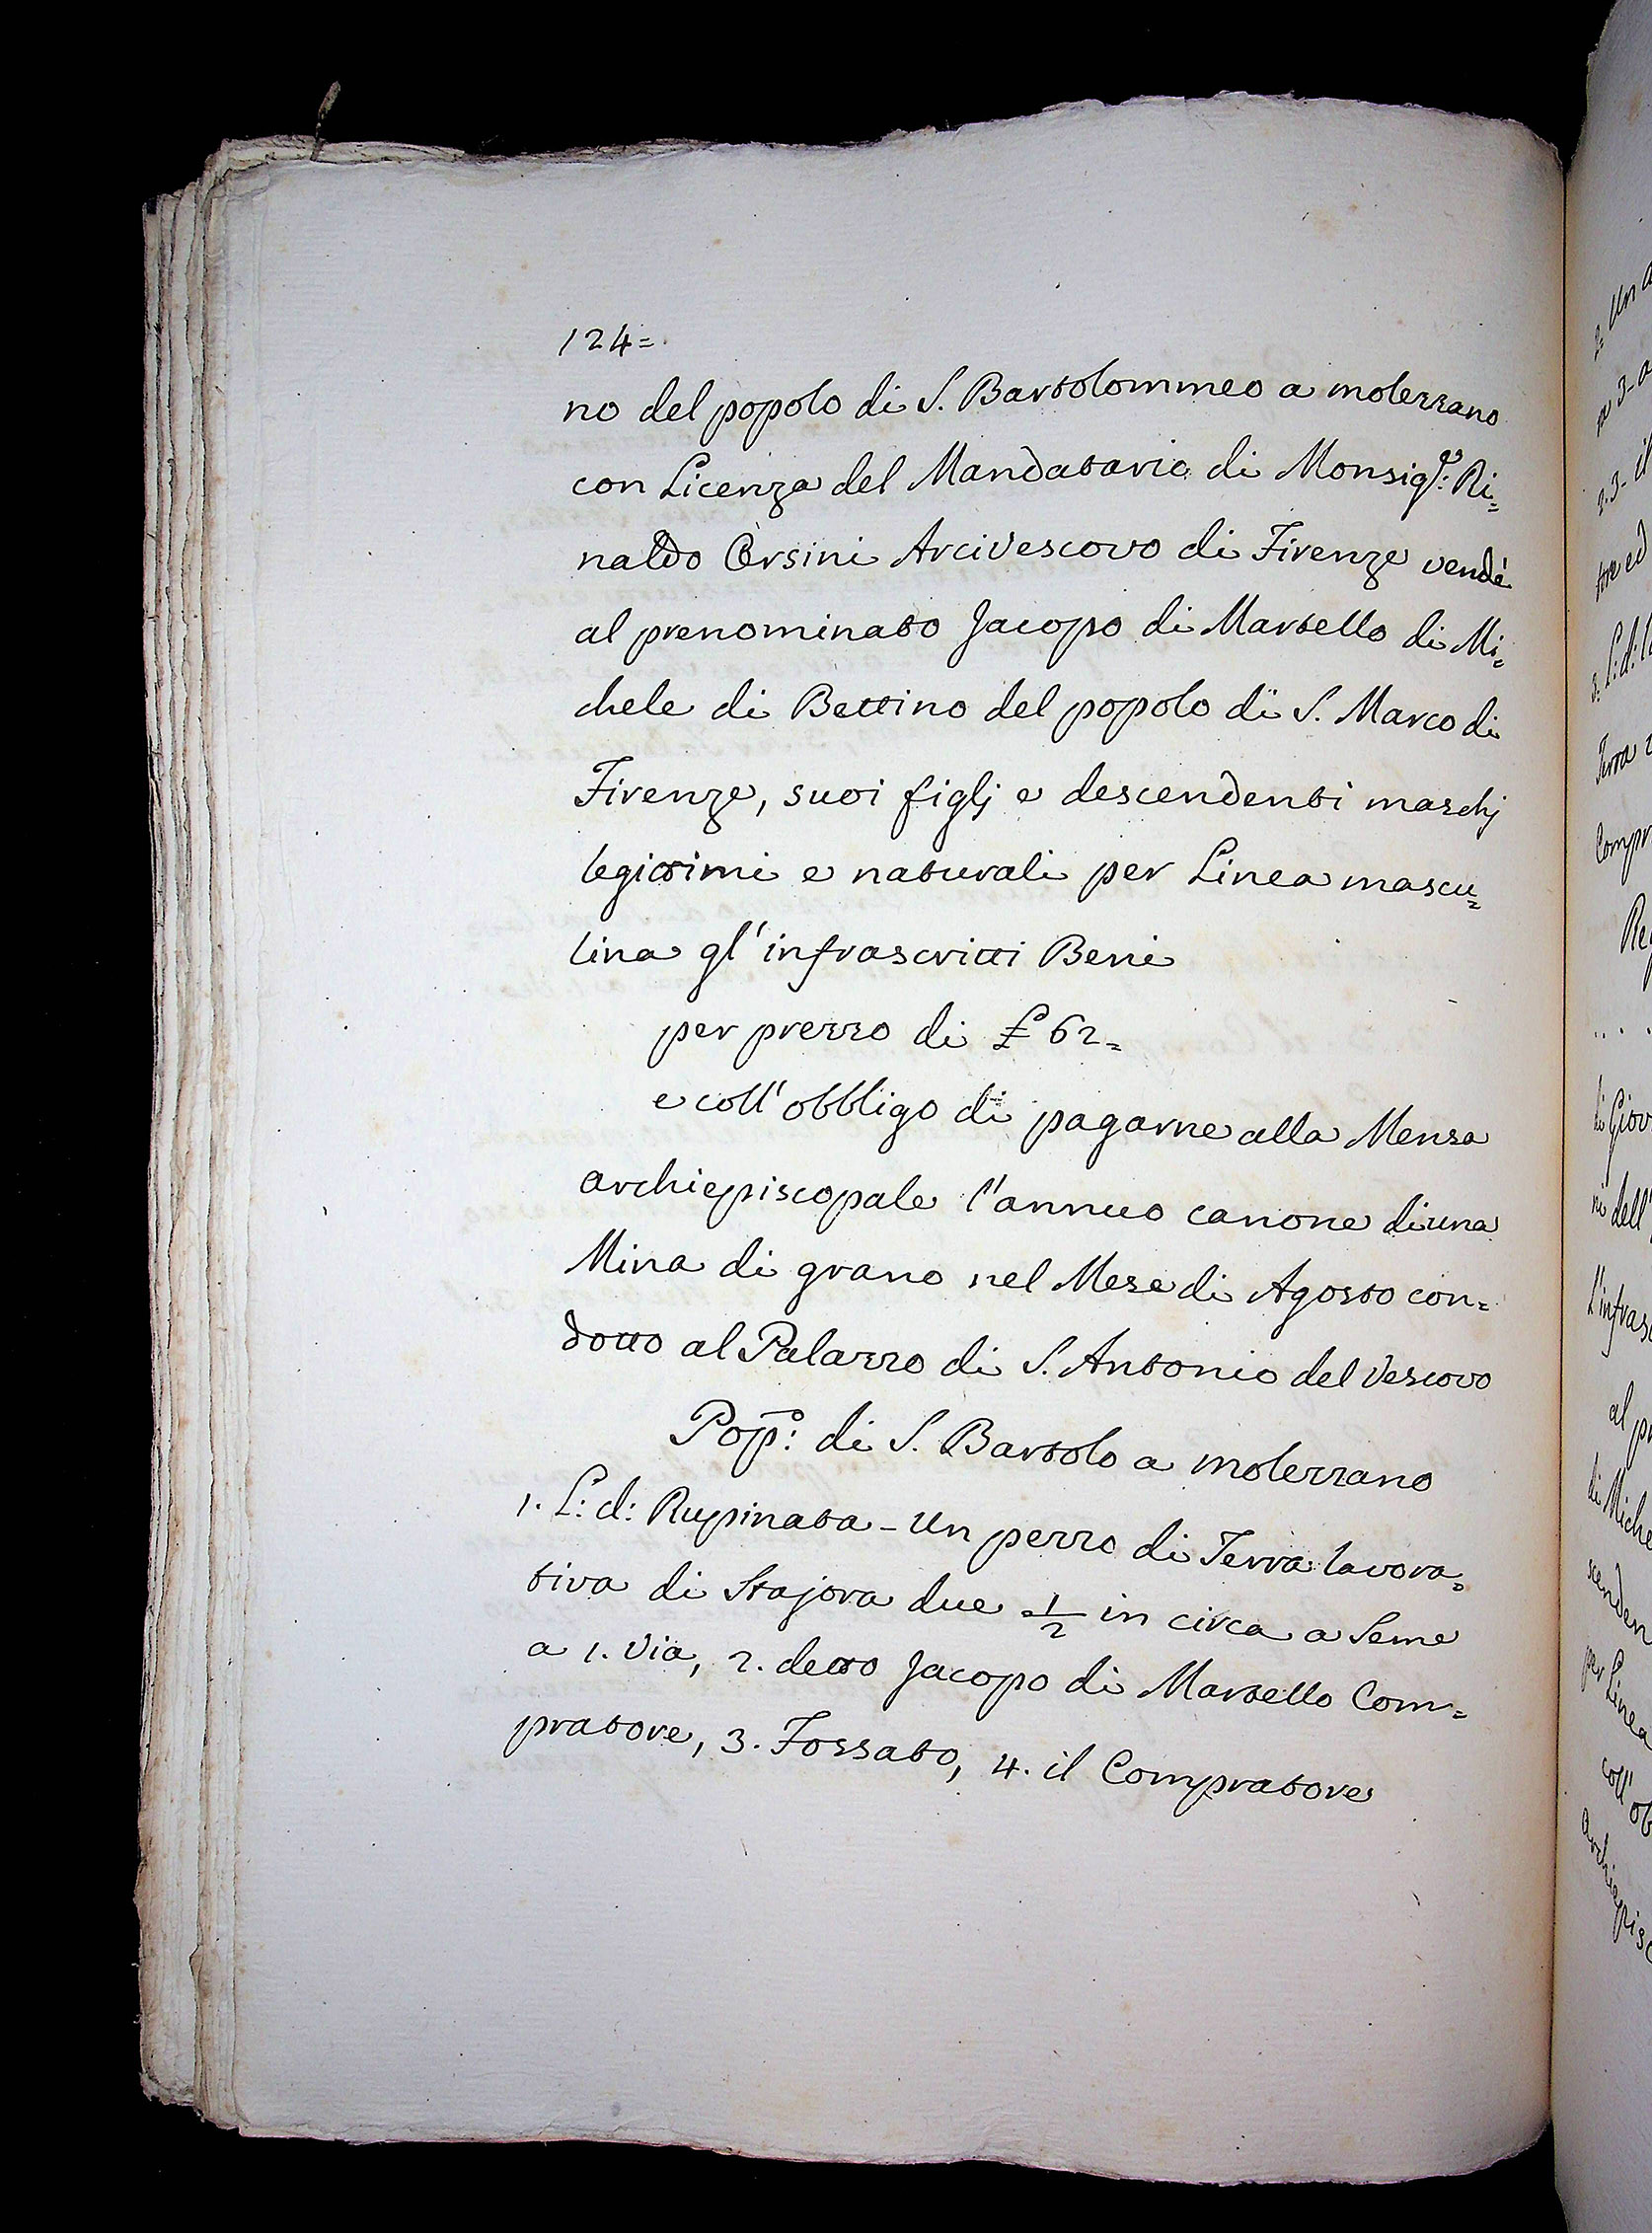 124=
no del popolo di S. Bartolommeo a molezzano
con Licenza del Mandatario di Monsigr: Ri=
naldo Orsini Arcivescovo di Firenze vendè
al prenominato Jacopo di Martello di Mi=
chele di Bettino del popolo di S. Marco di
Firenze, suoi figlj e descendenti maschj
legittimi e naturali per Linea mascu=
lina gl'infrascritti Beni
per prezzo di £ 62=
e coll'obbligo di pagarne alla Mensa
archiepiscopale l'annuo canone di una
Mina di grano nel Mese di Agosto con=
dotto al Palazzo di S. Antonio del Vescovo
Pop: di S. Bartolo a molezzano
1. L: d: Rupinata - Un pezzo di Terra lavora=
tiva di Stajora due 1/2 in circa a Seme
a 1. Via, 2. detto Jacopo di Martello Com=
pratore, 3. Fossato, 4. il Compratore
2. Un
3. L: d:
Terra
Compr
di Giov
dell'
L'infras
al pr
di Miche
scenden
per Linea
coll' ob
Archiepisc